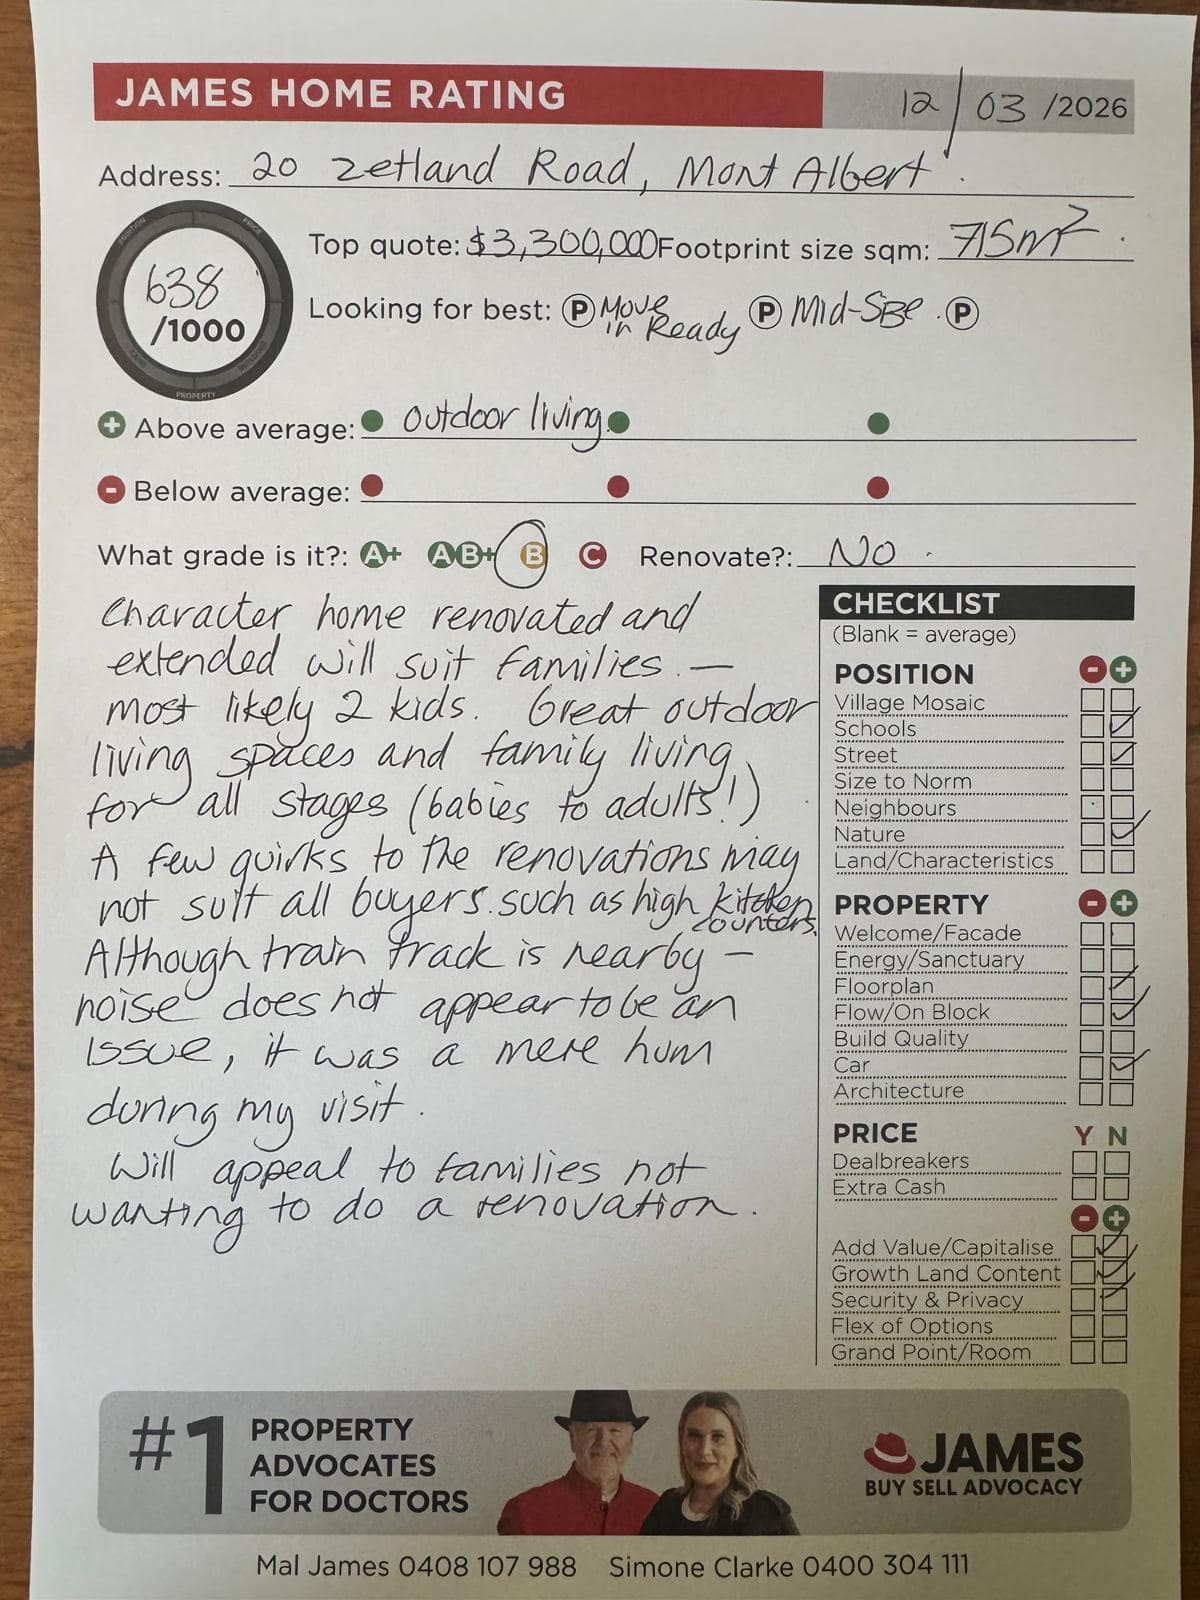 JAMES HOME RATING
12/03/2026
Address: 20 Zetland Road, Mont Albert.
638
/1000
Top quote: $3,300,000 Footprint size sqm: 715m².
Looking for best: P Move in Ready P Mid-SBE. P
+ Above average: outdoor living.
- Below average:
What grade is it?: A+ AB+ B C Renovate?: No.
Character home renovated and
extended will suit families. —
most likely 2 kids. Great outdoor
living spaces and family living,
for all stages (babies to adults!)
A few quirks to the renovations may
not suit all buyers. such as high kitchen
counters.
Although train track is nearby —
noise does not appear to be an
issue, it was a mere hum
during my visit.
Will appeal to families not
wanting to do a renovation.
CHECKLIST
(Blank = average)
POSITION - +
Village Mosaic
Schools
Street
Size to Norm
Neighbours
Nature
Land/Characteristics
PROPERTY - +
Welcome/Facade
Energy/Sanctuary
Floorplan
Flow/On Block
Build Quality
Car
Architecture
PRICE Y N
Dealbreakers
Extra Cash
- +
Add Value/Capitalise
Growth Land Content
Security & Privacy
Flex of Options
Grand Point/Room
#1
PROPERTY
ADVOCATES
FOR DOCTORS
JAMES
BUY SELL ADVOCACY
Mal James 0408 107 988 Simone Clarke 0400 304 111